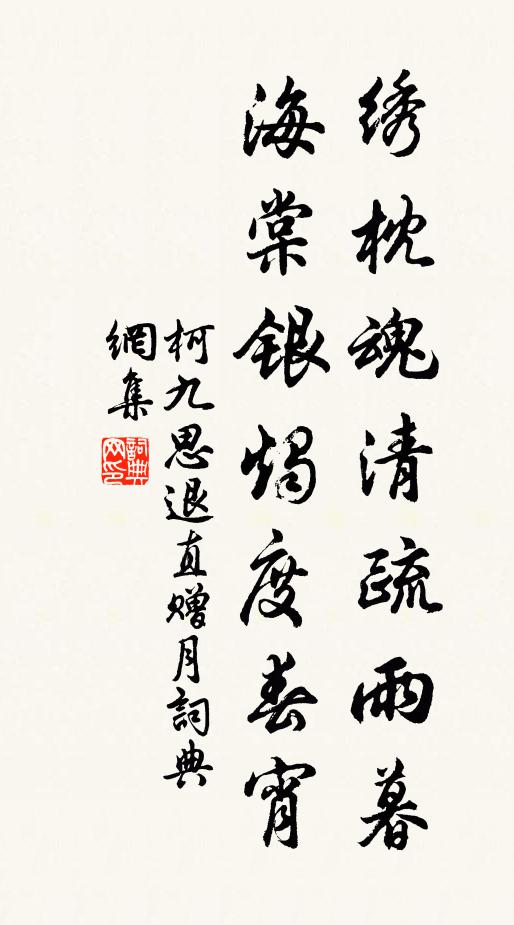 绣枕魂清疏雨暮
海棠银烛度春宵
柯九思退直赠月詞典
網集
詞典网印